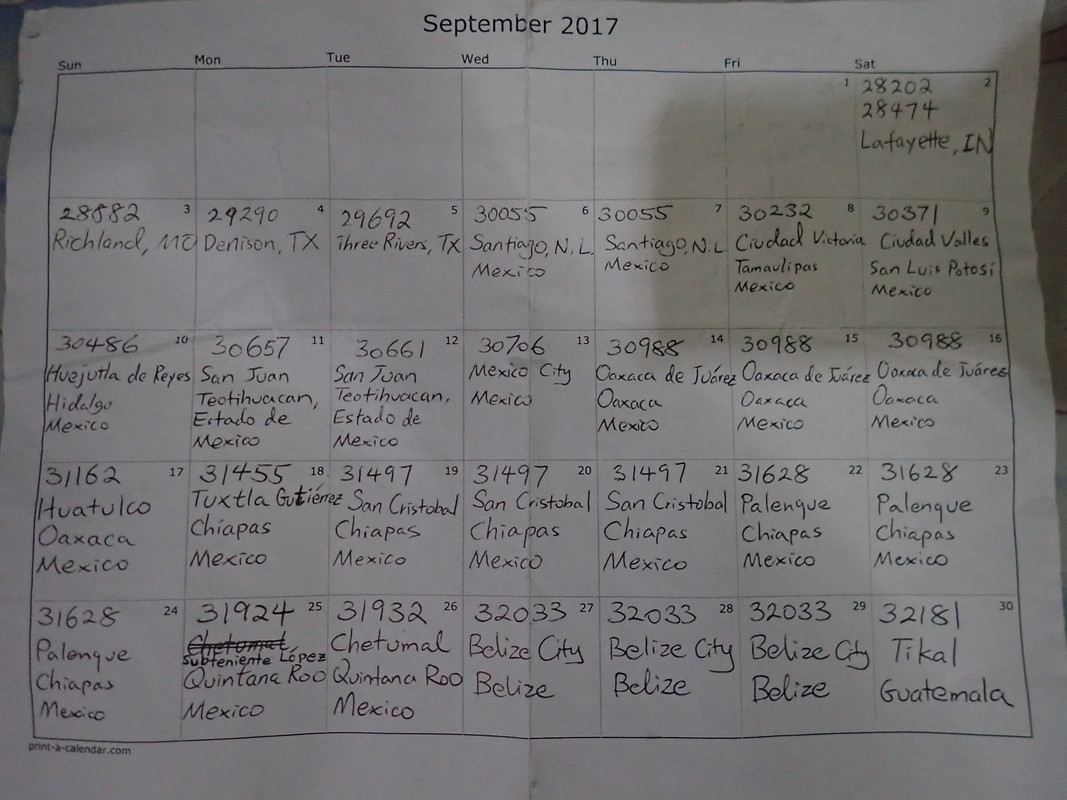 September 2017
Sun Mon Tue Wed Thu Fri Sat
1
28202 2
28474
Lafayette, IN
28882 3
Richland, MO
29290 4
Denison, TX
29692 5
Three Rivers, TX
30055 6
Santiago, N.L.
Mexico
30055 7
Santiago, N.L
Mexico
30232 8
Ciudad Victoria
Tamaulipas
Mexico
30371 9
Ciudad Valles
San Luis Potosí
Mexico
30486 10
Huejutla de Reyes
Hidalgo
Mexico
30657 11
San Juan
Teotihuacan,
Estado de
Mexico
30661 12
San Juan
Teotihuacan,
Estado de
Mexico
30706 13
Mexico City
Mexico
30988 14
Oaxaca de Juárez
Oaxaca
Mexico
30988 15
Oaxaca de Juárez
Oaxaca
Mexico
30988 16
Oaxaca de Juárez
Oaxaca
Mexico
31162 17
Huatulco
Oaxaca
Mexico
31455 18
Tuxtla Gutiérrez
Chiapas
Mexico
31497 19
San Cristobal
Chiapas
Mexico
31497 20
San Cristobal
Chiapas
Mexico
31497 21
San Cristobal
Chiapas
Mexico
31628 22
Palenque
Chiapas
Mexico
31628 23
Palenque
Chiapas
Mexico
31628 24
Palenque
Chiapas
Mexico
31924 25
Chetumal
Subteniente López
Quintana Roo
Mexico
31932 26
Chetumal
Quintana Roo
Mexico
32033 27
Belize City
Belize
32033 28
Belize City
Belize
32033 29
Belize City
Belize
32181 30
Tikal
Guatemala
print-a-calendar.com